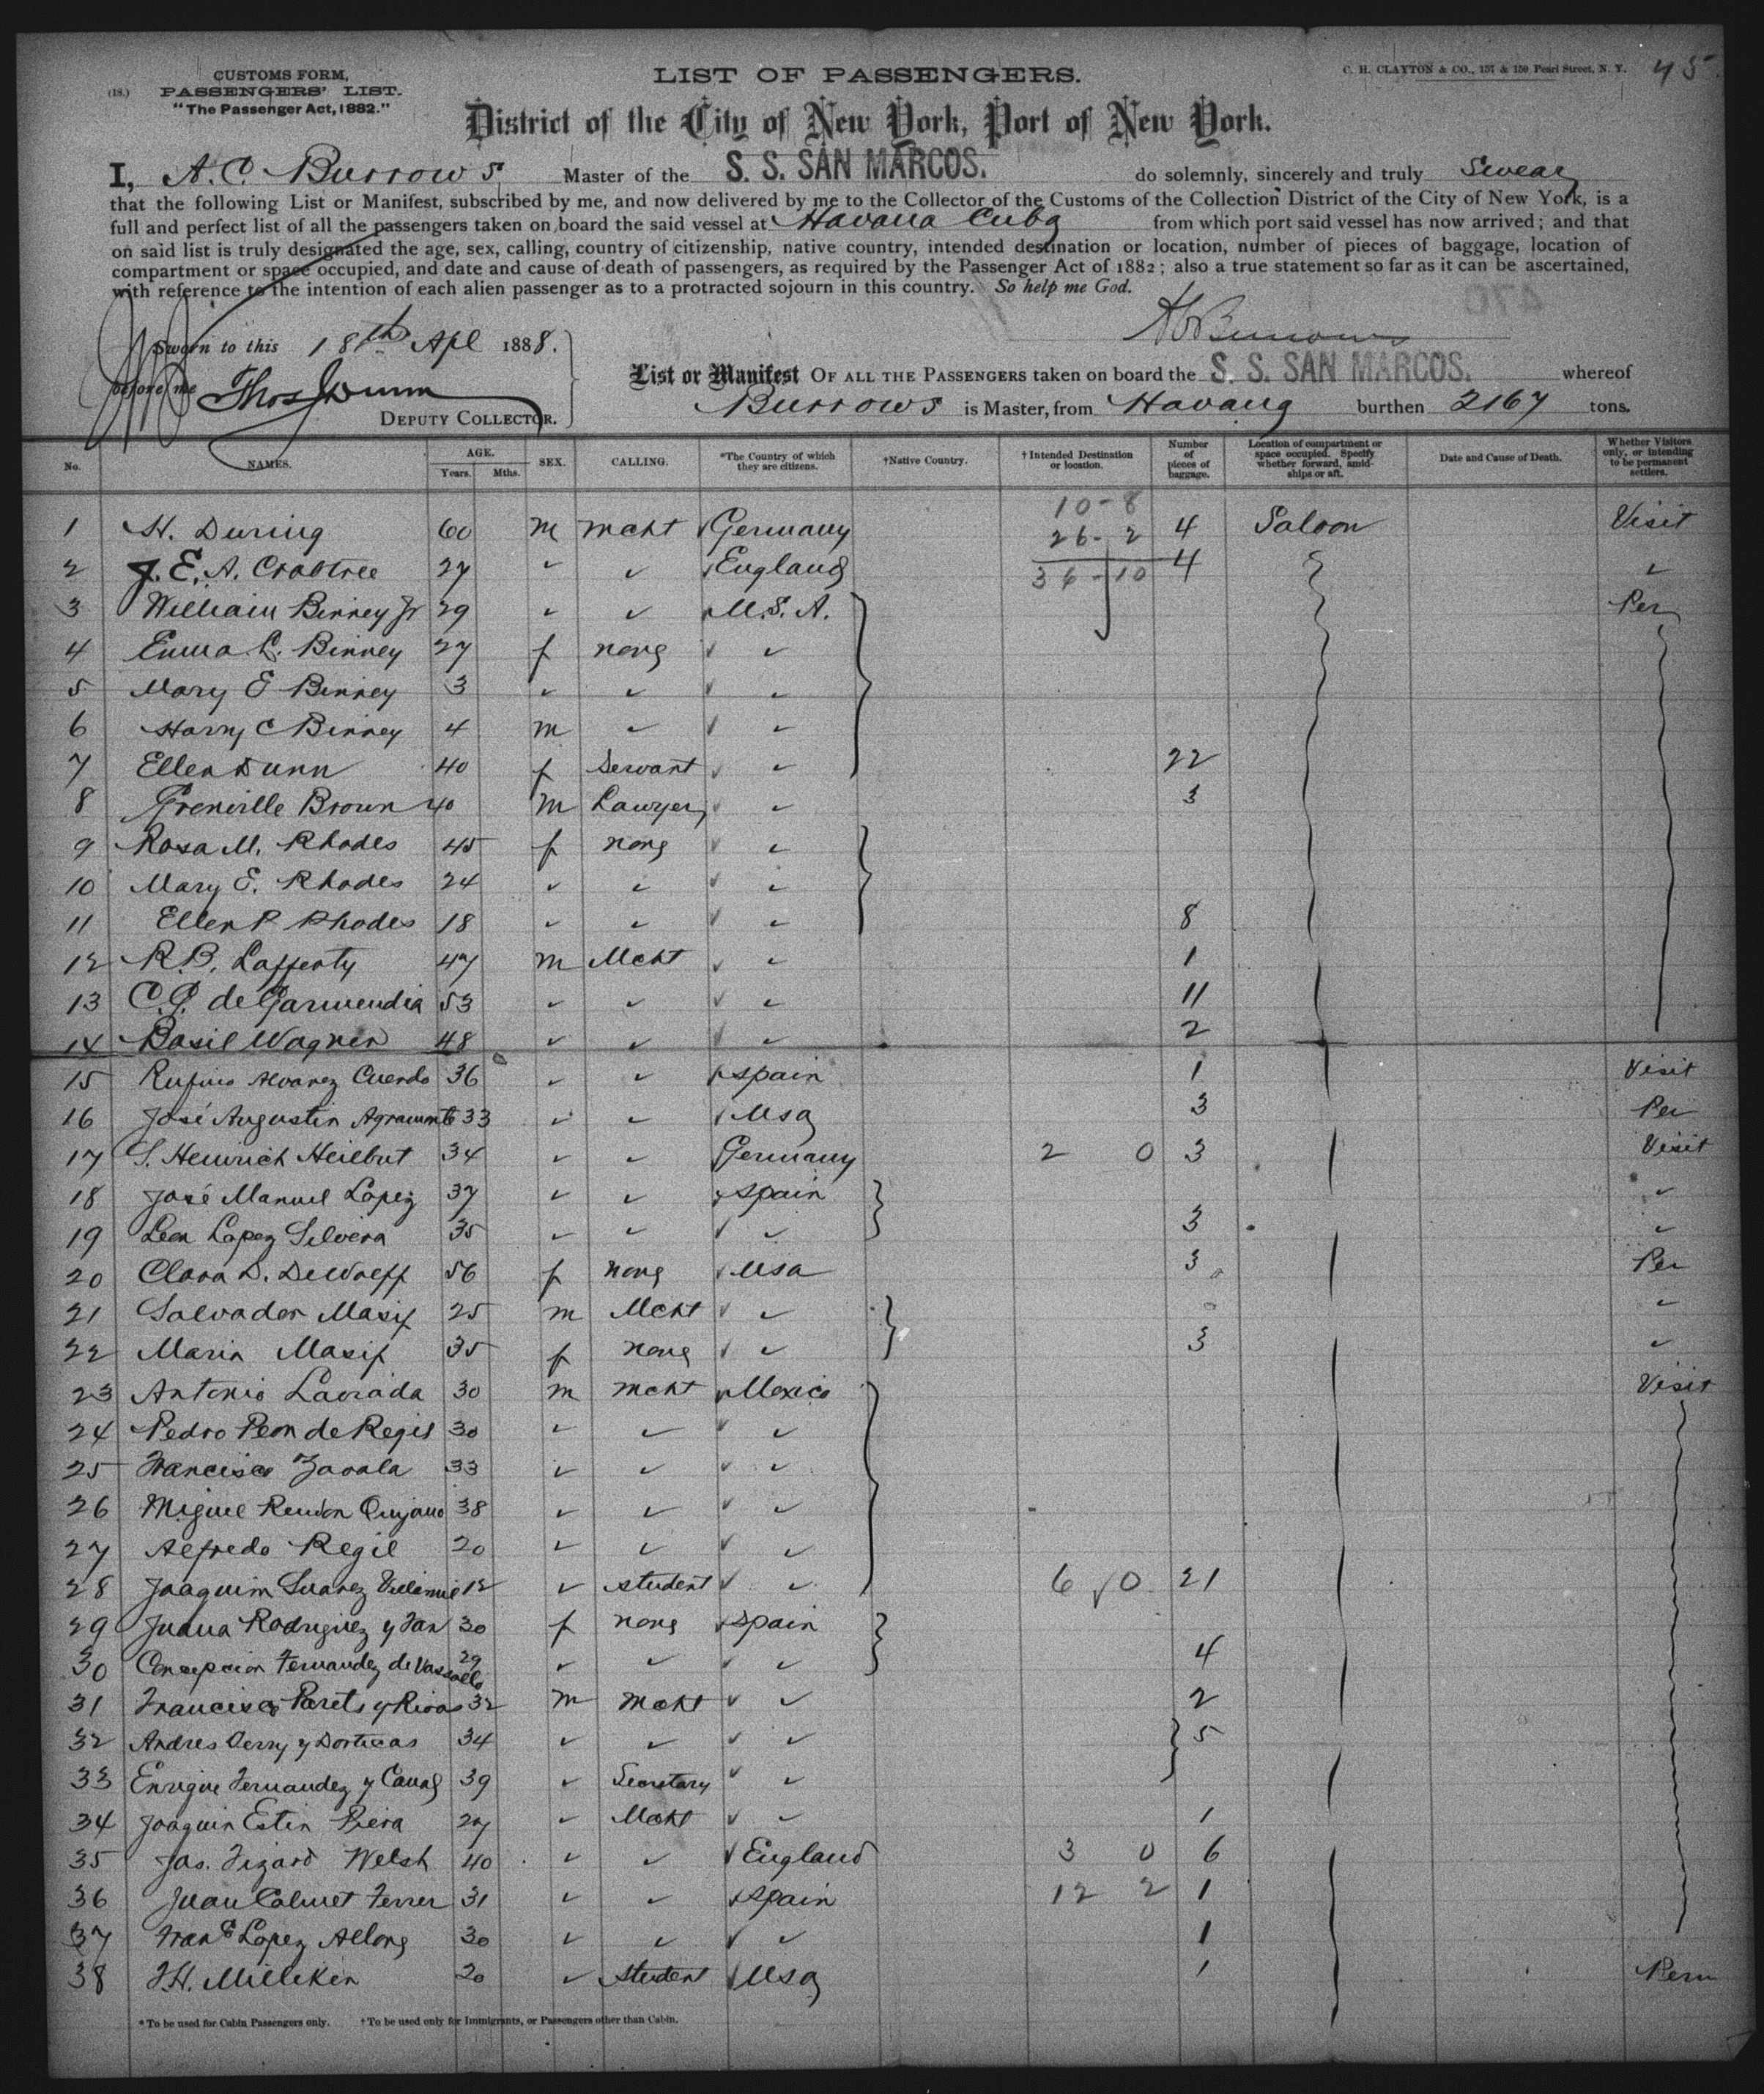 CUSTOMS FORM,
(18.) PASSENGERS' LIST.
"The Passenger Act, 1882."
LIST OF PASSENGERS.
C. H. CLAYTON & CO., 157 & 159 Pearl Street, N. Y. 45
District of the City of New York, Port of New York.
I, A. C. Burrows, Master of the S. S. SAN MARCOS. do solemnly, sincerely and truly Swear
that the following List or Manifest, subscribed by me, and now delivered by me to the Collector of the Customs of the Collection District of the City of New York, is a
full and perfect list of all the passengers taken on board the said vessel at Havana Cuba from which port said vessel has now arrived; and that
on said list is truly designated the age, sex, calling, country of citizenship, native country, intended destination or location, number of pieces of baggage, location of
compartment or space occupied, and date and cause of death of passengers, as required by the Passenger Act of 1882; also a true statement so far as it can be ascertained,
with reference to the intention of each alien passenger as to a protracted sojourn in this country. So help me God.
Burrows
Sworn to this 18th Apl 1888.
before me Thos Dunn
DEPUTY COLLECTOR.
List or Manifest OF ALL THE PASSENGERS taken on board the S. S. SAN MARCOS. whereof
Burrows is Master, from Havana burthen 2167 tons.
No. NAMES. AGE. Years. Mths. SEX. CALLING. *The Country of which they are citizens. †Native Country. †Intended Destination or location. Number of pieces of baggage. Location of compartment or space occupied. Specify whether forward, amidships or aft. Date and Cause of Death. Whether Visitors only, or intending to be permanent settlers.
10-8
1 H. During 60 m mcht Germany 26-2 4 Saloon Visit
2 J. E. A. Crabtree 27 " " England 36-10 4 "
3 William Binney Jr 29 " " U.S.A. Per
4 Emma L. Binney 27 f none " "
5 Mary E Binney 3 " " "
6 Harry C Binney 4 m " "
7 Ellen Dunn 40 f Servant " 22
8 Grenville Brown 40 m Lawyer " 3
9 Rosa M. Rhodes 45 f none "
10 Mary E. Rhodes 24 " " "
11 Ellen P Rhodes 18 " " " 8
12 R. B. Lafferty 47 m Mcht " 1
13 C. G. de Garmendia 53 " " " 11
14 Basil Wagner 48 " " " 2
15 Rufino Alvarez Cuerdo 36 " " Spain 1 Visit
16 José Augustin Agramonte 33 " " Usa 3 Per
17 S. Heinrich Heilbut 34 " " Germany 2 0 3 Visit
18 José Manuel Lopez 37 " " Spain "
19 Leon Lopez Silvera 35 " " " 3 "
20 Clara D. DeWolff 56 f none Usa 3 Per
21 Salvador Masip 25 m Mcht " "
22 Maria Masip 35 f none " 3 "
23 Antonio Laviada 30 m mcht Mexico Visit
24 Pedro Peon de Regil 30 " " "
25 Francisco Zavala 33 " " "
26 Miguel Rendon Quijano 38 " " "
27 Alfredo Regil 20 " " "
28 Joaquim Suarez 12 " student " 6 0 21
29 Juana Rodriguez y Fan 30 f none Spain
30 Concepcion Fernandez de Vassallo 29 " " " 4
31 Francisco Parets y Rivas 32 m mcht " 2
32 Andres Terry y Dorticos 34 " " " 5
33 Enrique Fernandez y Canas 39 " Secretary "
34 Joaquin Estin Piera 27 " Mcht " 1
35 Jas. Tizard Welsh 40 " " England 3 0 6
36 Juan Calmet Ferrer 31 " " Spain 12 2 1
37 Franc Lopez Allong 30 " " " 1
38 F. H. Milliken 20 " student Usa 1 Perm
* To be used for Cabin Passengers only. † To be used only for Immigrants, or Passengers other than Cabin.